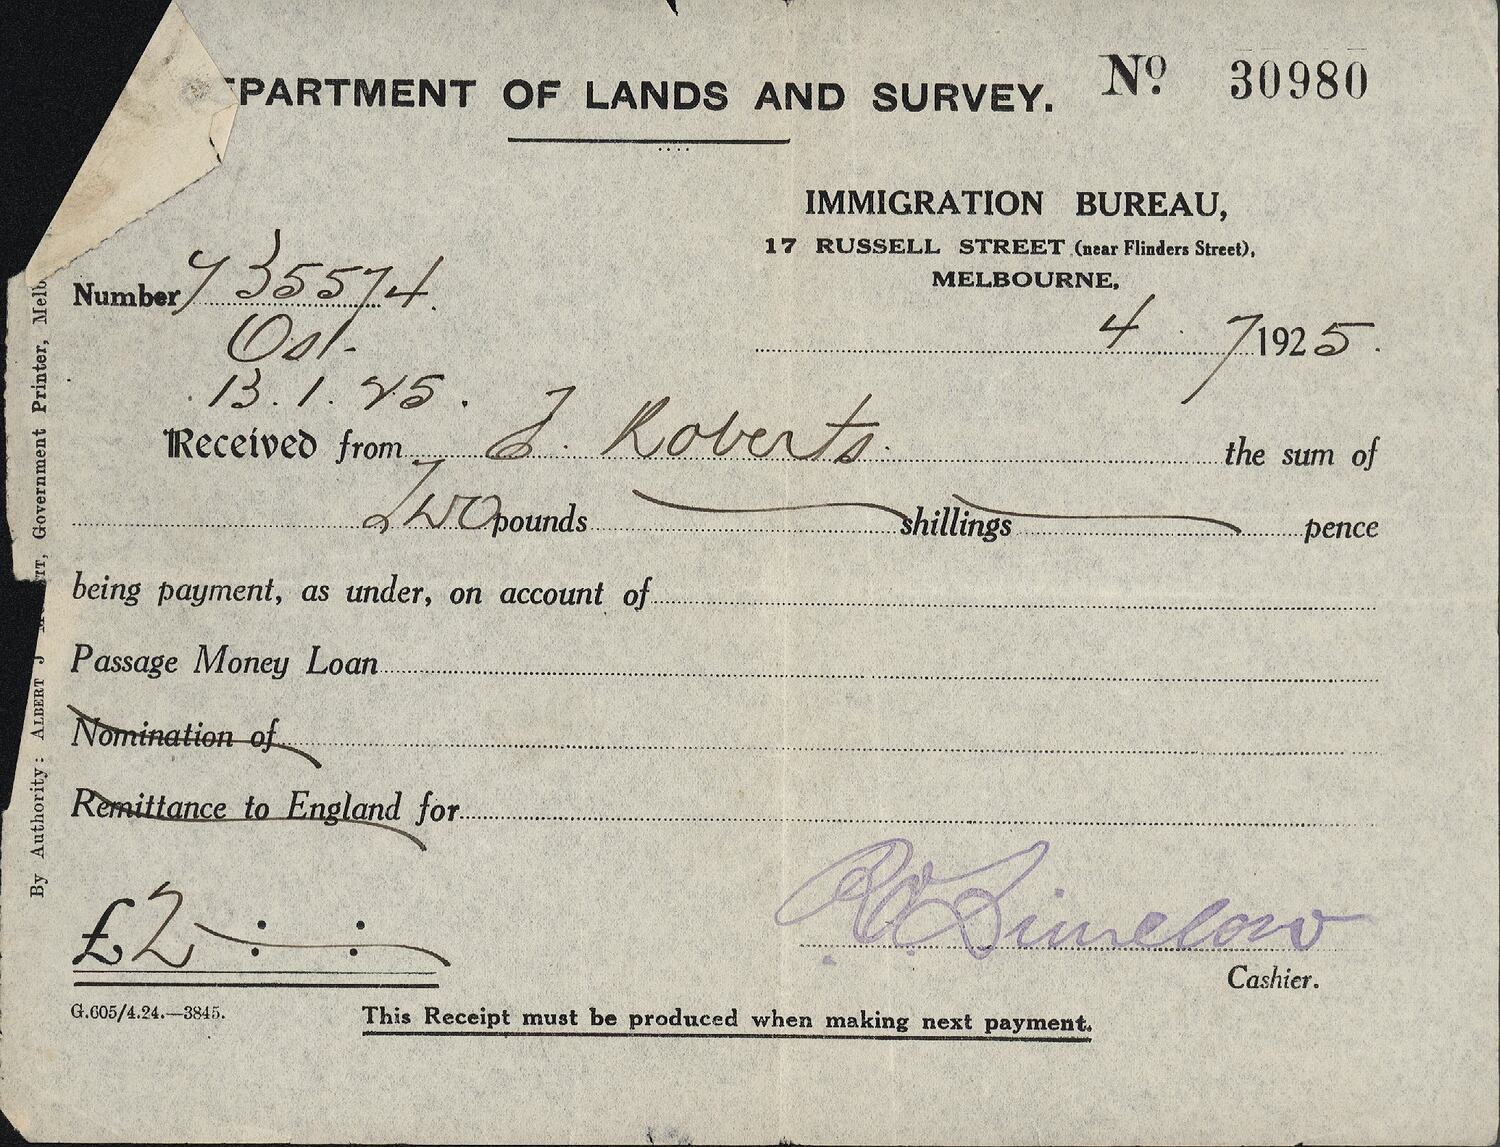 EPARTMENT OF LANDS AND SURVEY. No. 30980
IMMIGRATION BUREAU,
17 RUSSELL STREET (near Flinders Street),
MELBOURNE,
Number 735574.
4 . 7 1925.
13.1.25.
Received from Roberts. the sum of
Two pounds shillings pence
being payment, as under, on account of
Passage Money Loan
Nomination of
Remittance to England for
£2 : :
Cashier.
G.605/4.24.—3845.
This Receipt must be produced when making next payment.
By Authority: ALBERT J TT, Government Printer, Melb